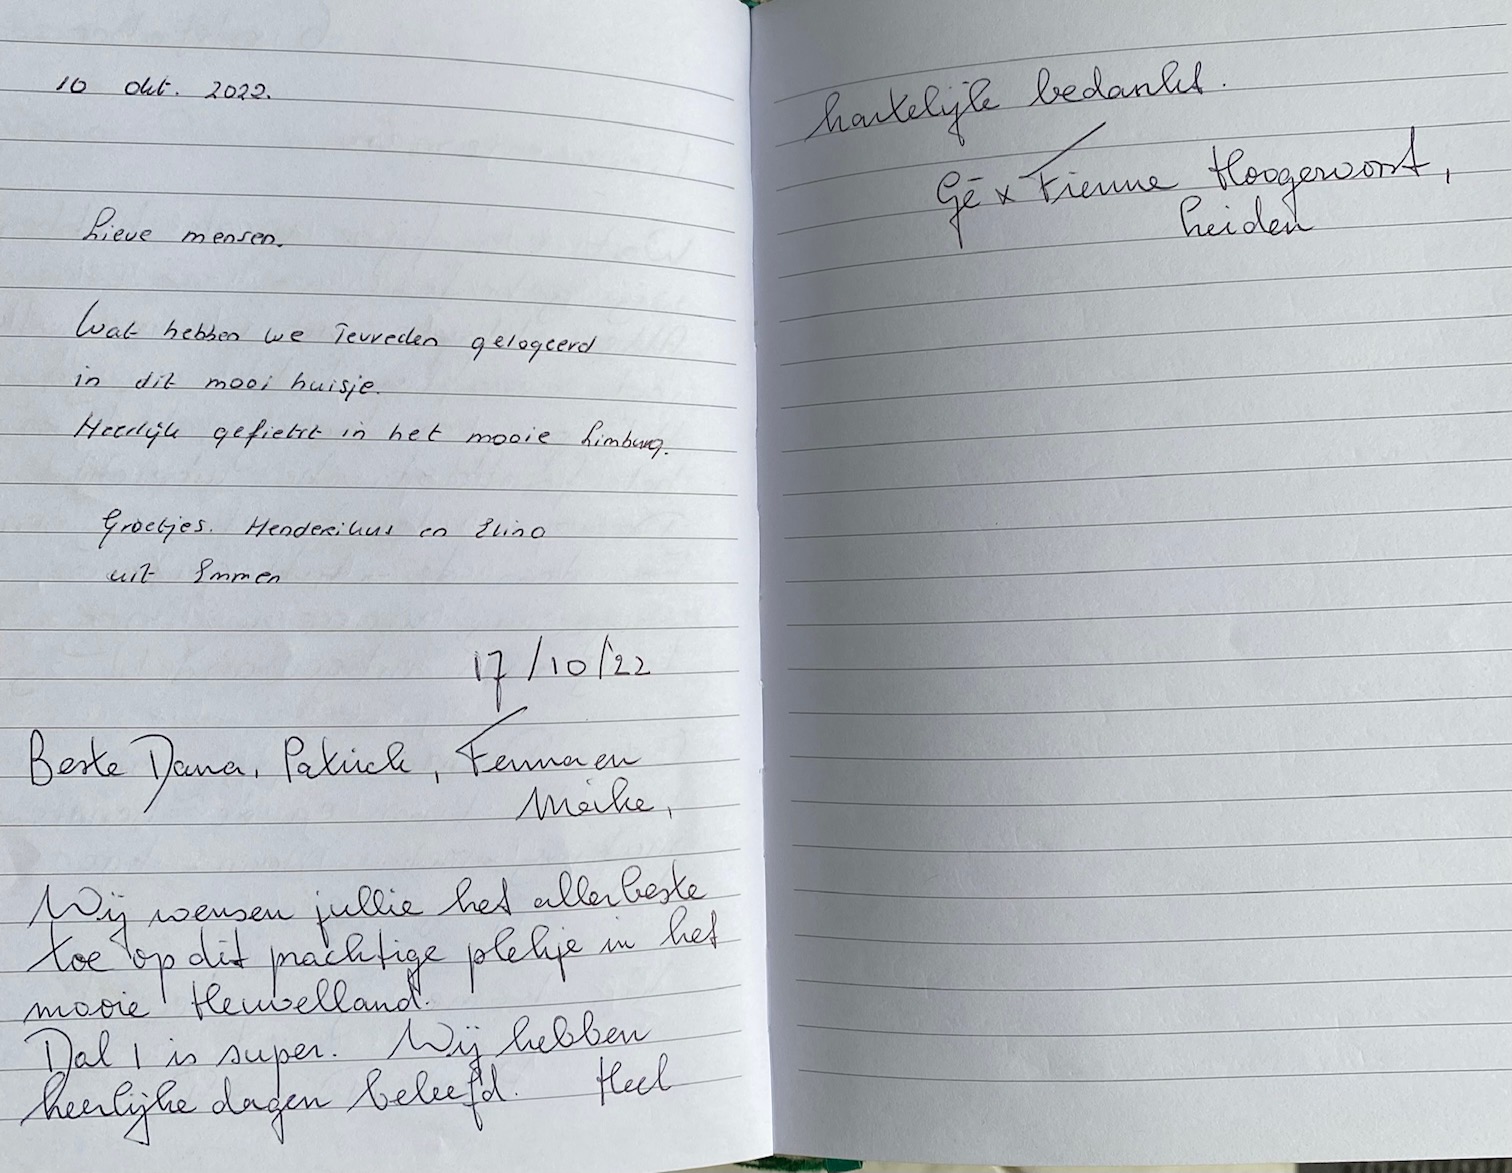 10 okt. 2022.
Lieve mensen.
Wat hebben we Tevreden gelogeerd
in dit mooi huisje.
Heerlijk gefietst in het mooie Limburg.
Groetjes. Henderikus en
uit Emmen
17/10/22
Beste Dana, Patrick, Fenna en
Meike,
Wij wensen jullie het allerbeste
toe op dit prachtige plekje in het
mooie Heuvelland.
Dal 1 is super. Wij hebben
heerlijke dagen beleefd. Heel
hartelijk bedankt.
Gé x Fienne Hoogervorst,
Leiden